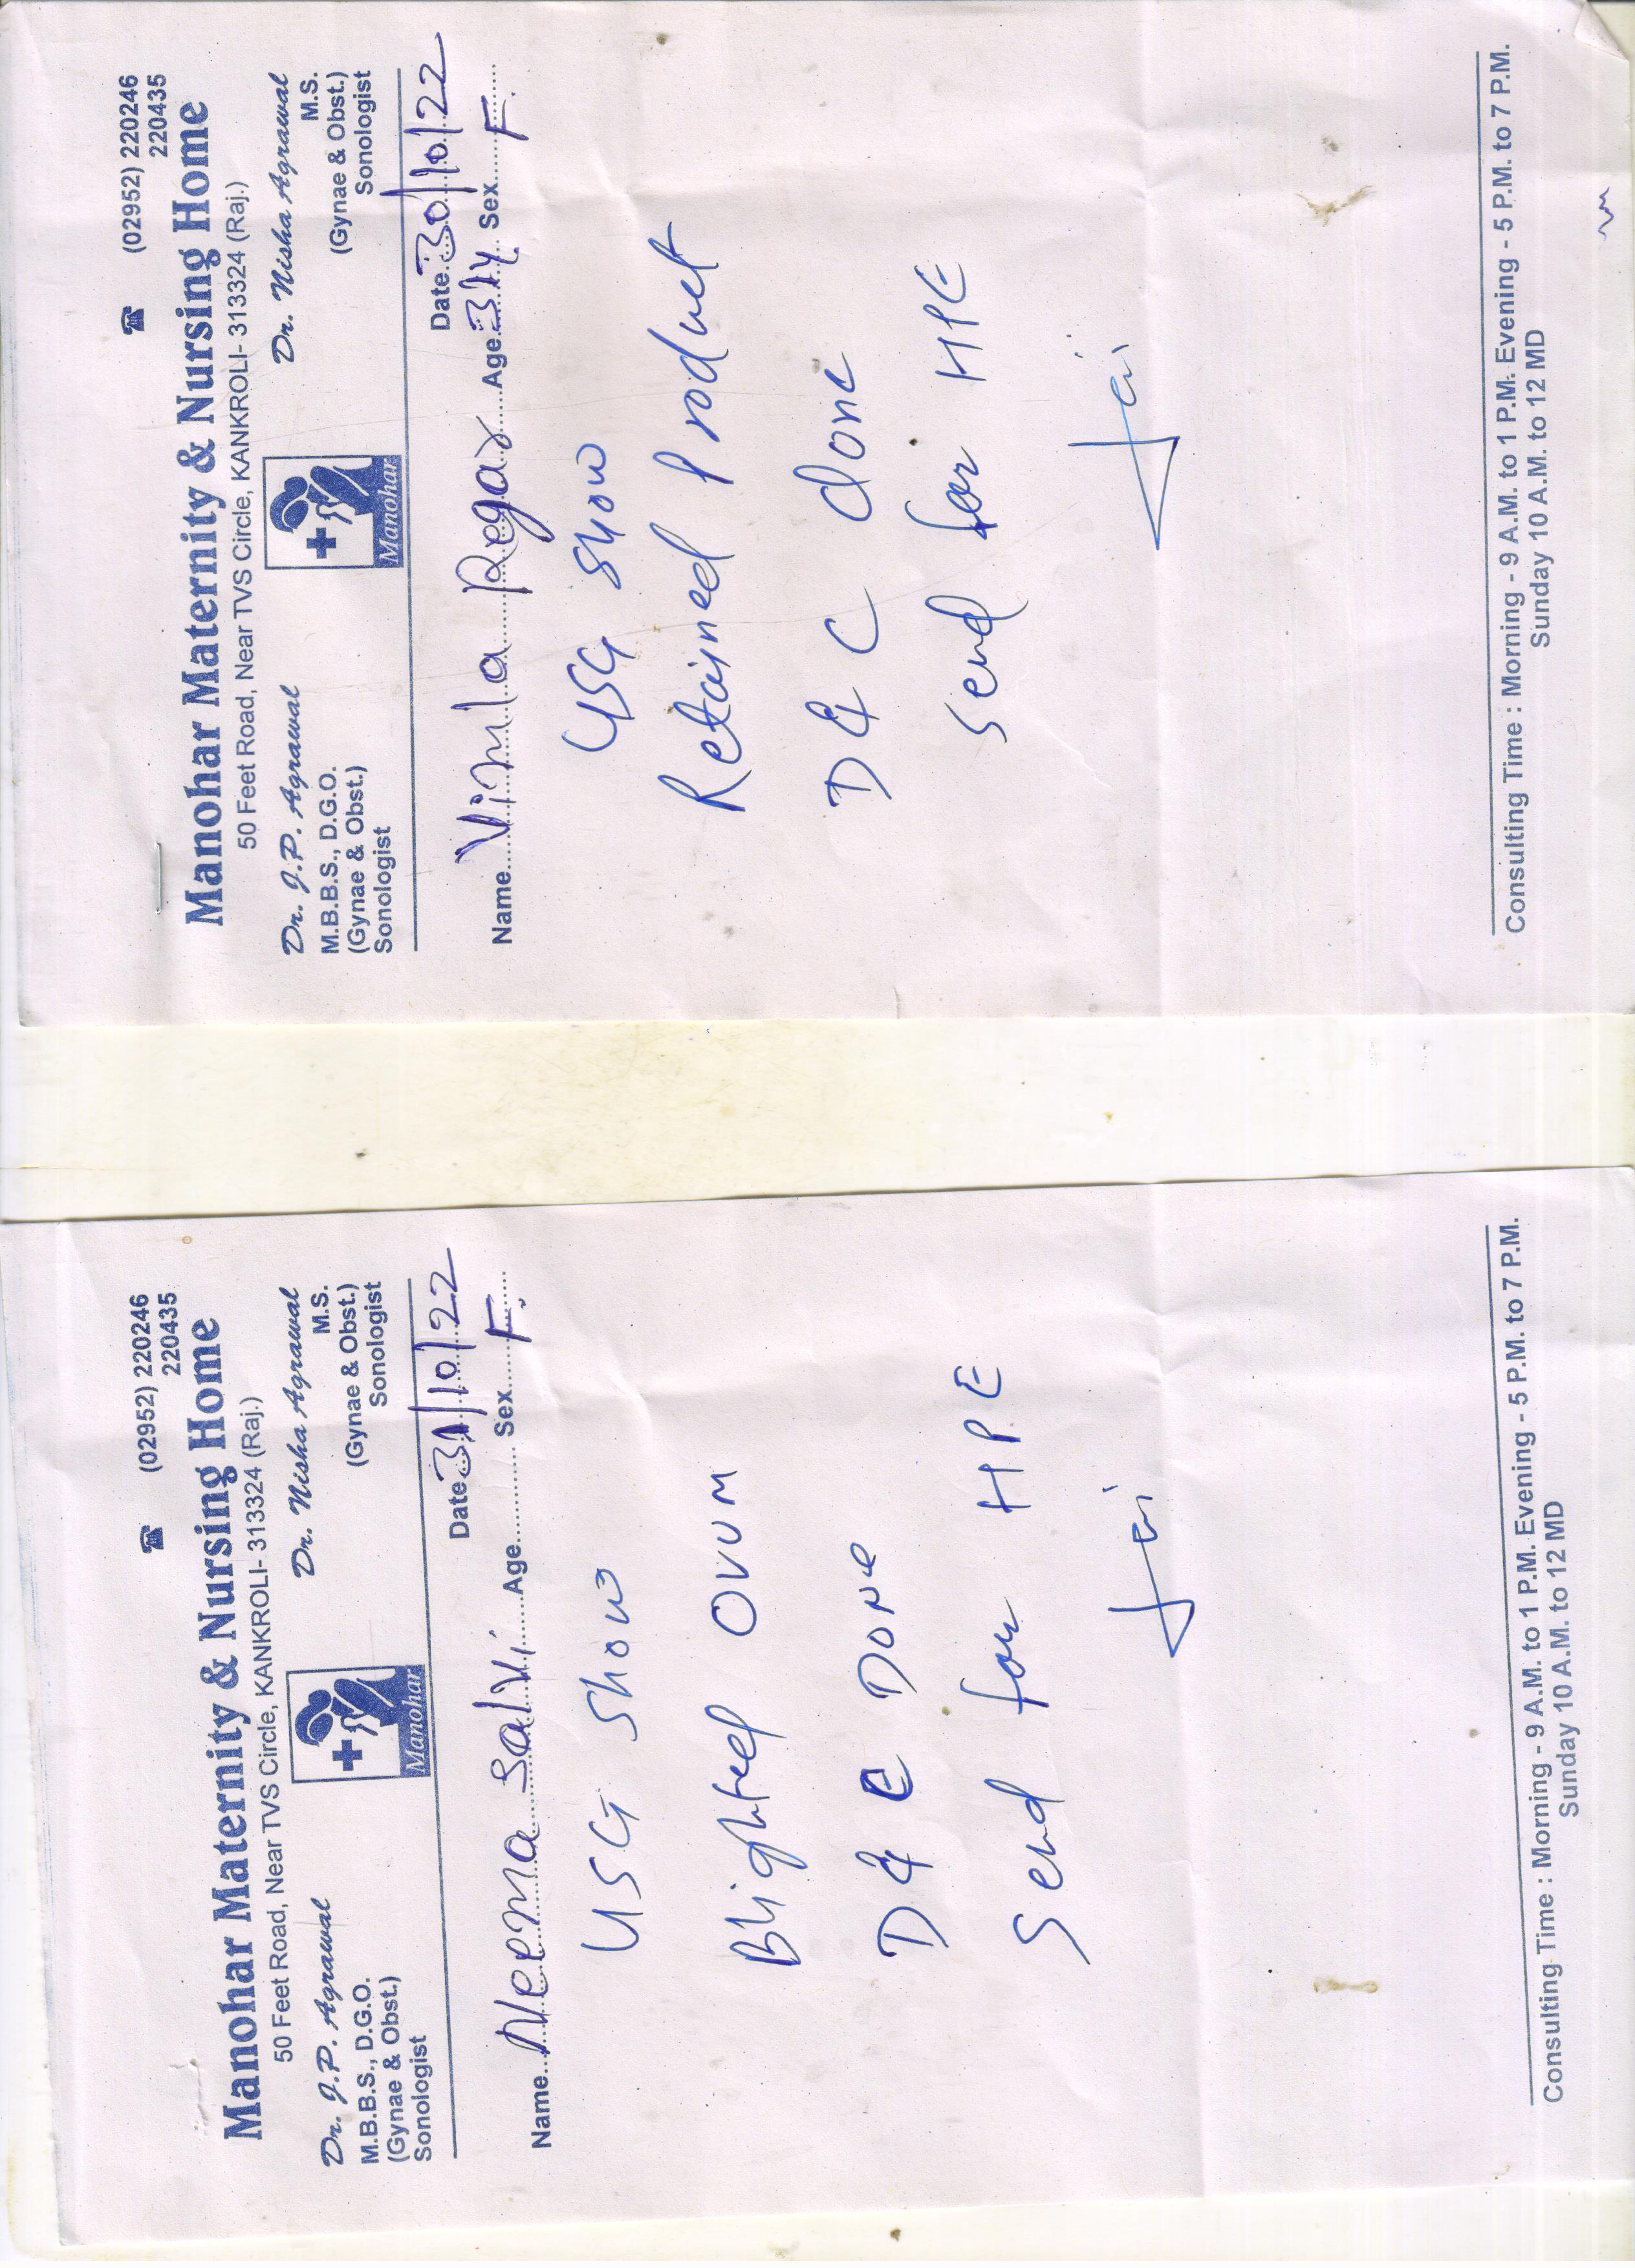 ☎ (02952) 220246
220435
Manohar Maternity & Nursing Home
50 Feet Road, Near TVS Circle, KANKROLI- 313324 (Raj.)
Dr. J.P. Agrawal
M.B.B.S., D.G.O.
(Gynae & Obst.)
Sonologist
Manohar
Dr. Nisha Agrawal
M.S.
(Gynae & Obst.)
Sonologist
Date 31/10/22
Name Neema Salvi Age Sex F
USG Show
Blighted OVUM
D & C Done
Send for HPE
Consulting Time : Morning - 9 A.M. to 1 P.M. Evening - 5 P.M. to 7 P.M.
Sunday 10 A.M. to 12 MD
☎ (02952) 220246
220435
Manohar Maternity & Nursing Home
50 Feet Road, Near TVS Circle, KANKROLI- 313324 (Raj.)
Dr. J.P. Agrawal
M.B.B.S., D.G.O.
(Gynae & Obst.)
Sonologist
Manohar
Dr. Nisha Agrawal
M.S.
(Gynae & Obst.)
Sonologist
Date 30/10/22
Name Vimla Regar Age Sex F
USG Show
Retained Product
D & C done
Send for HPE
Consulting Time : Morning - 9 A.M. to 1 P.M. Evening - 5 P.M. to 7 P.M.
Sunday 10 A.M. to 12 MD